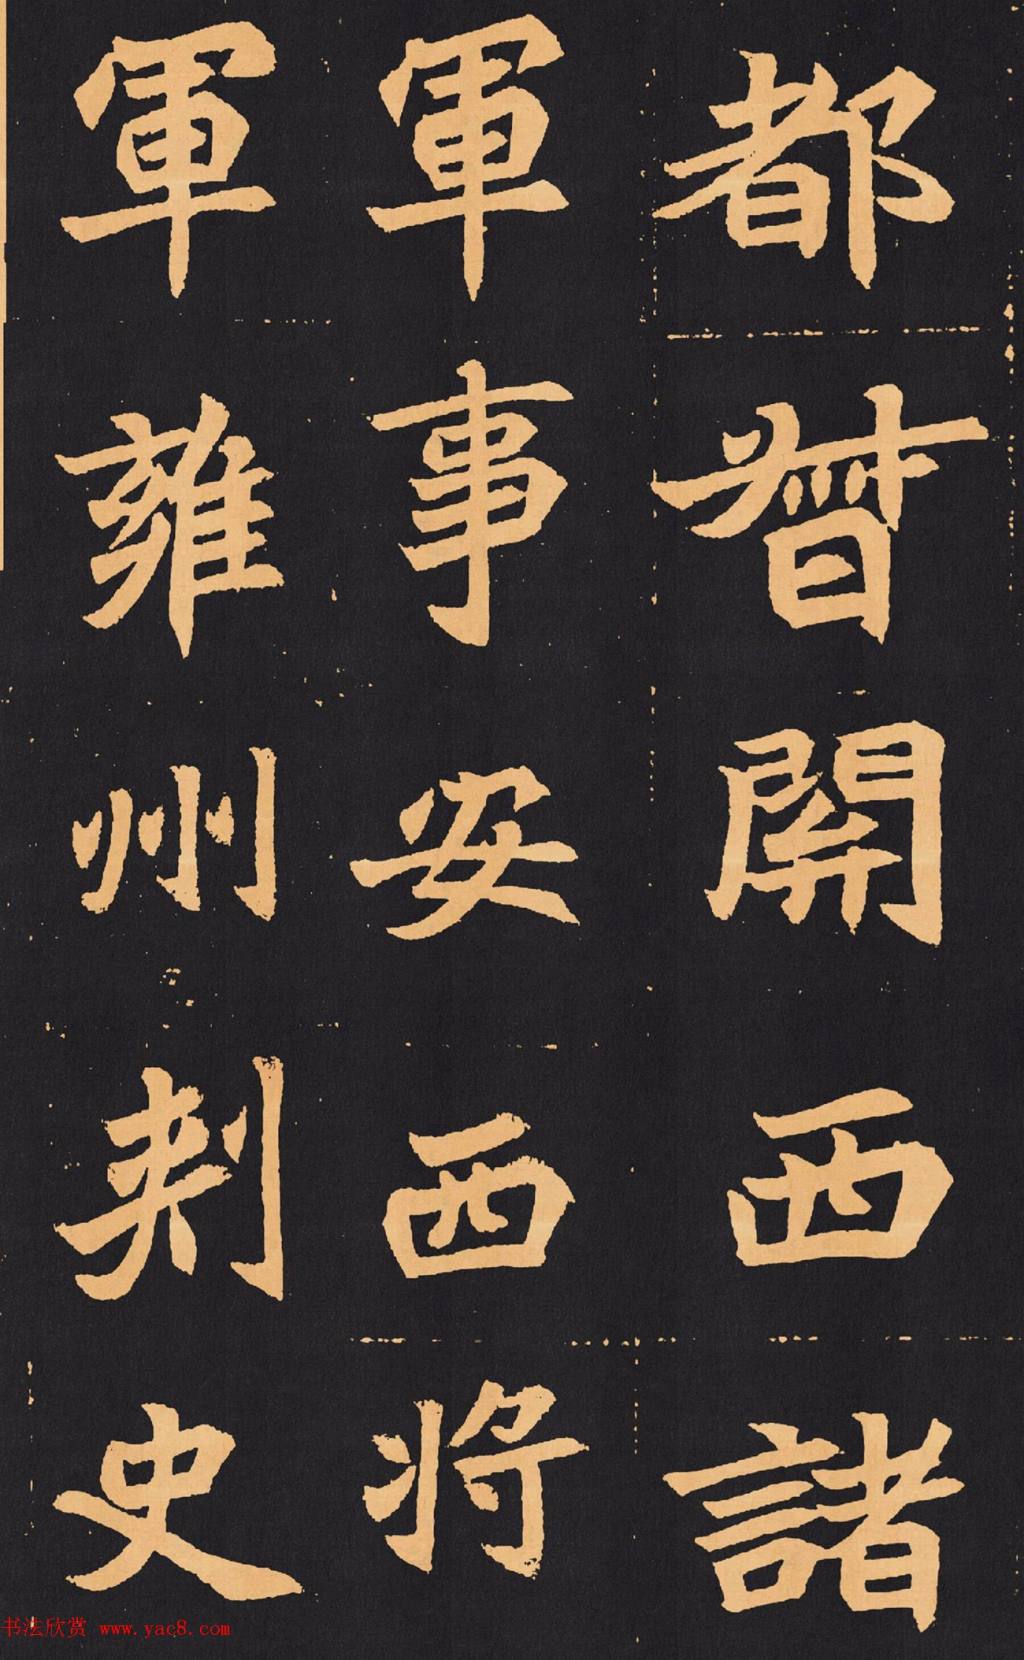 都督關西諸
軍事安西将
軍雍州刺史
书法欣赏 www.yac8.com